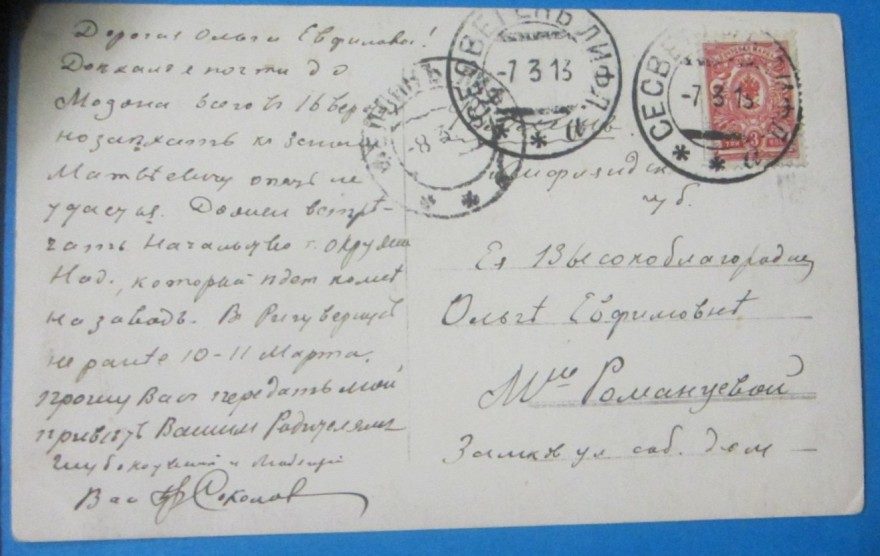 Дорогая Ольга Евфимовна!
Доехалъ я почти до
Модона всего въ 16 вер.
но заѣхать къ
опять не
удастся. Долженъ встрѣ-
чать Начальство г. Окружн.
Над., который ѣдет ко мнѣ
на заводъ. В Ригу вернусь
не ранѣе 10-11 Марта.
Прошу Вас передать мой
привѣтъ Вашим Родителямъ
Глубокоуважающий и
Вас Соколов
СЕСВЕГЕНЪ ЛИФЛ.
-7 3 13
а
СЕСВЕГЕНЪ ЛИФЛ.
-7 3 13
а
-8 3
Лифляндск
губ.
Ея Высокоблагородію
Ольгѣ Евфимовнѣ
Mlle Романцевой
Замков ул соб. дом